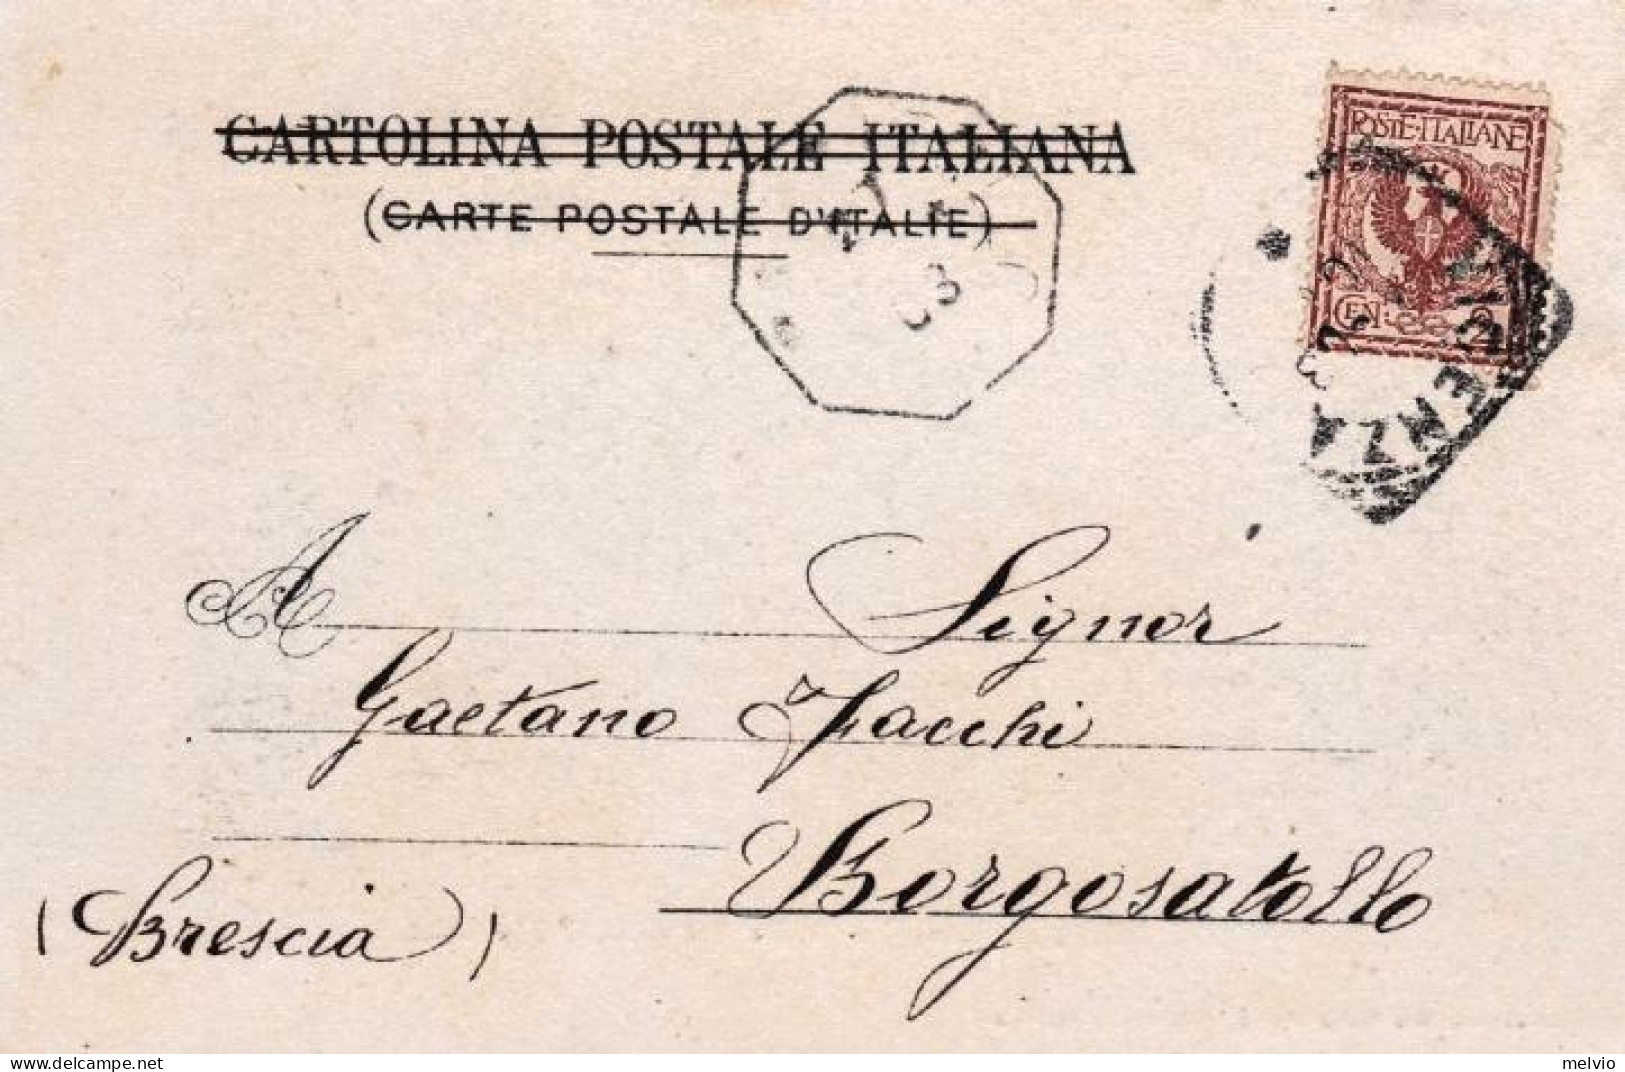 CARTOLINA POSTALE ITALIANA
(CARTE POSTALE D'ITALIE)
POSTE·ITALIANE
CEN: 2
VICENZA
A Signor
Gaetano Facchi
Borgosatollo
(Brescia)
melvio